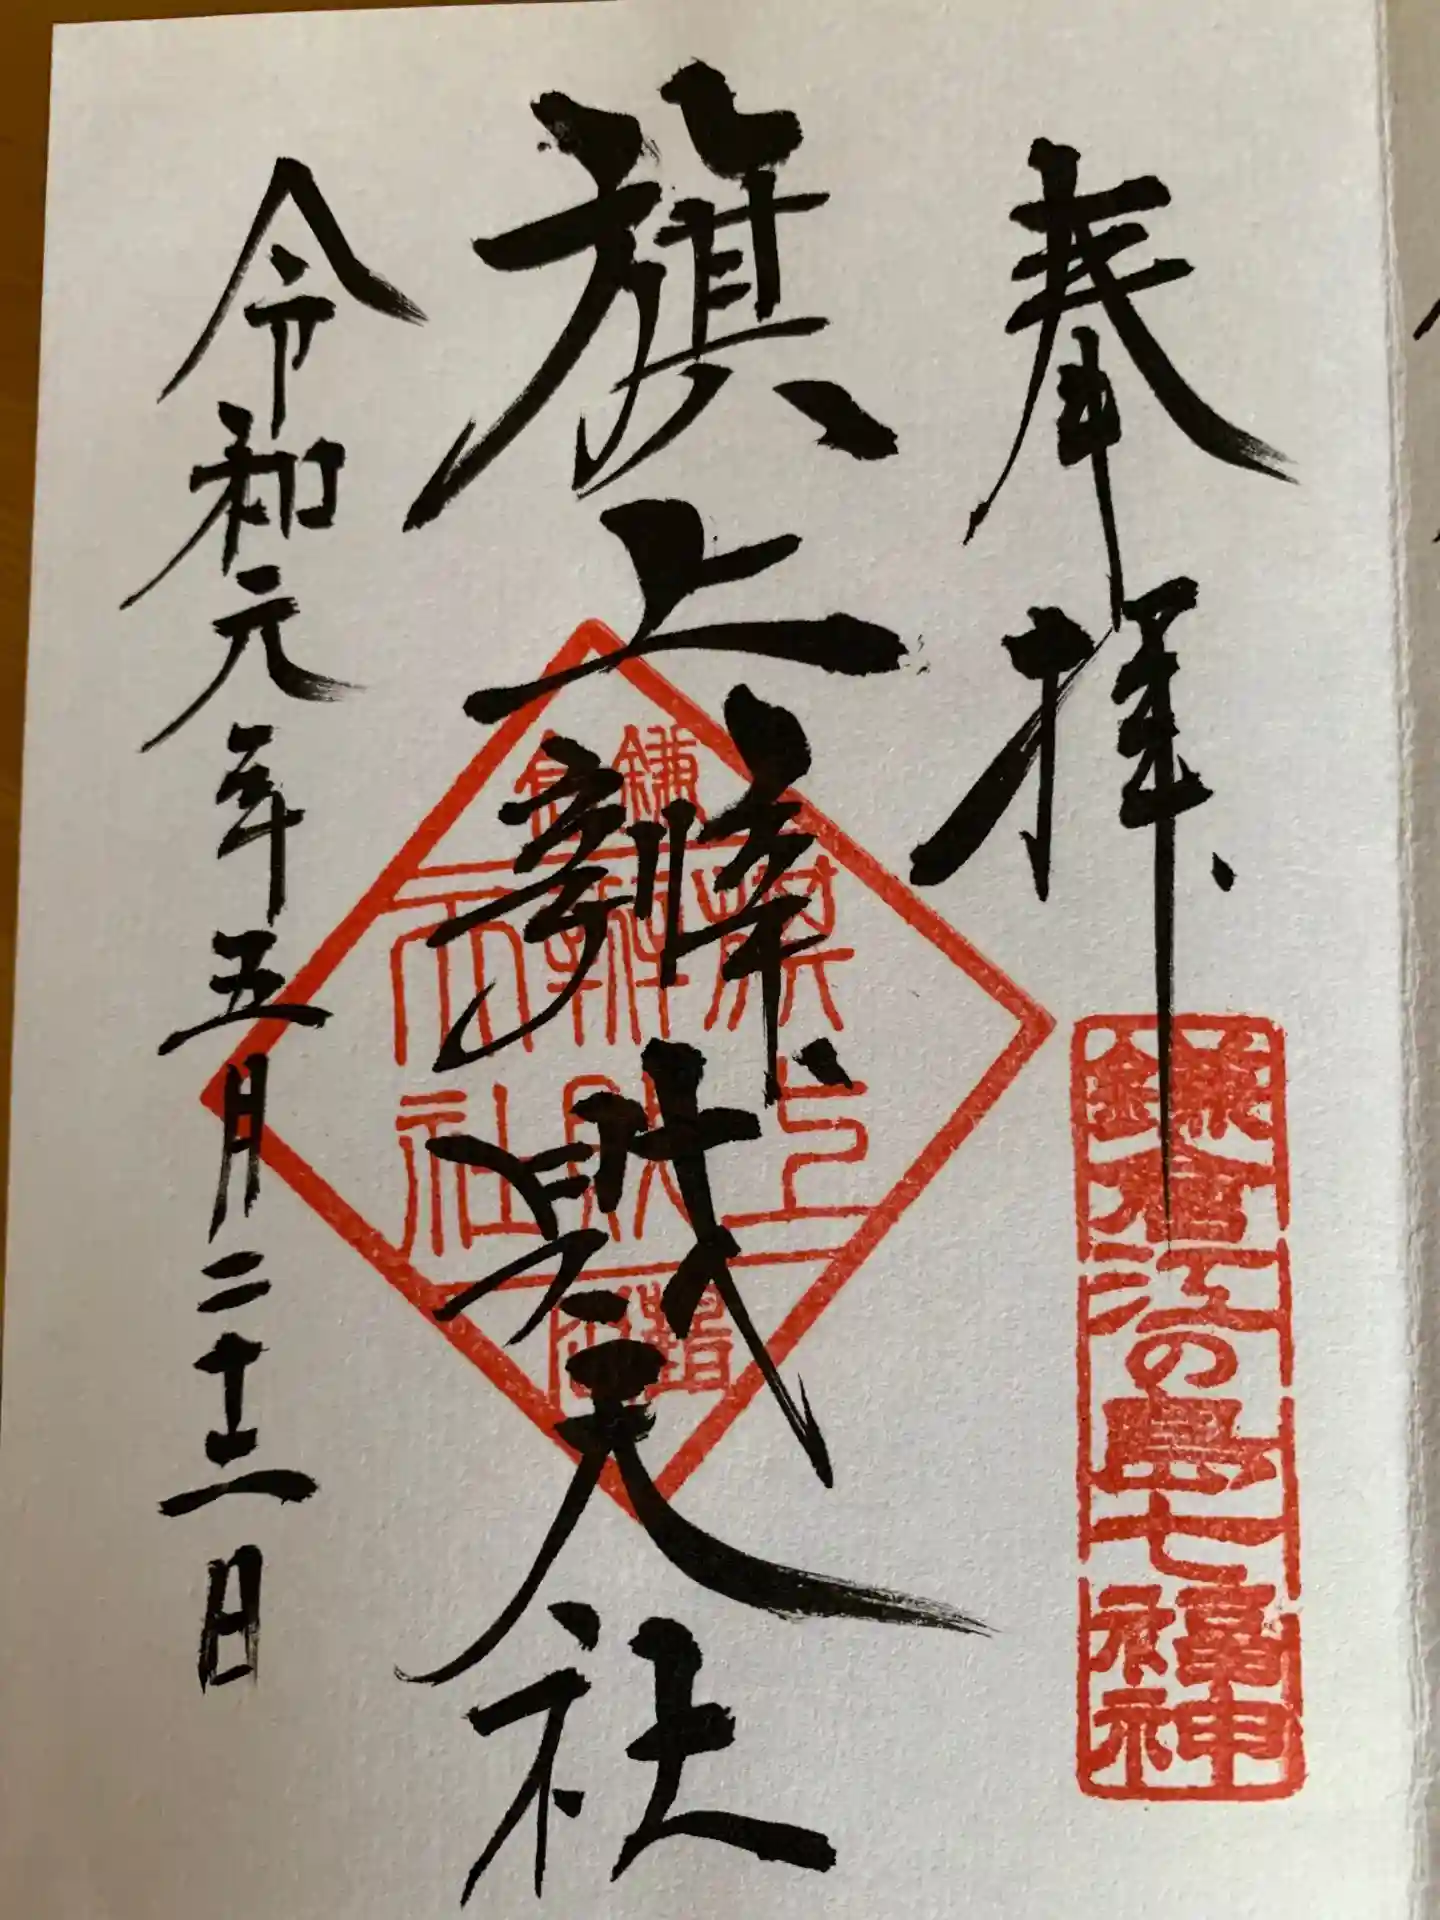 奉拝
鎌倉江の島七福神
旗上辨財天社
鎌倉
旗上
辨財
天社
令和元年五月二十二日